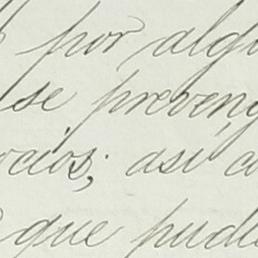 por algu
se preveng
ocios; así c
que pudi